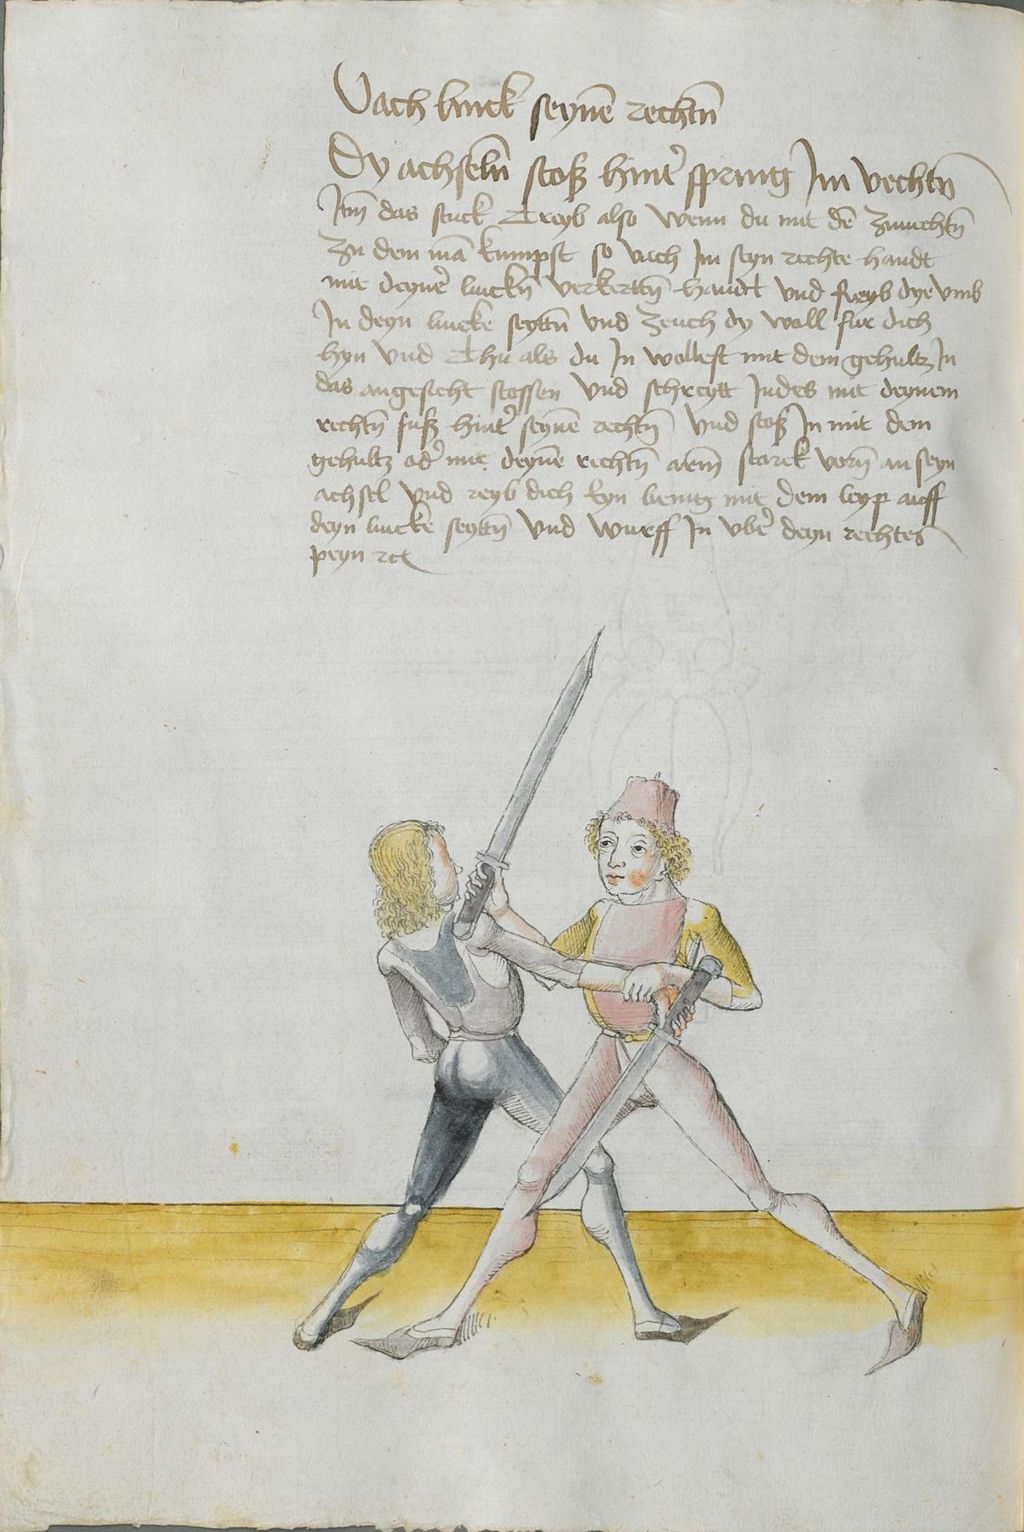 Vach linck seynē rechtn̄
Dy achseln̄ stoß hint' spring Im vechtn̄
Itm̄ das stuck Treyb also wenn du mit dē zuuechtn̄
Zu dem mā kumpst so vach Im seyn rechte handt
mit deyner' linckn̄ verkertn̄ handt vnd reyb dye vmb
In deyn lincke seyttn̄ vnd zeuch dy woll fur dich
hyn vnd Thu als du In wollest mit dem gehultz In
das angesicht stossen vnd schreytt Indes mit deynem
rechtn̄ fuß hint' seynē rechtn̄ vnd stoß In mit dem
gehultz od' mit deynē rechtn̄ arm̄ starck vorn̄ an seyn
achsel vnd reyb dich eyn wenig mit dem leyp auff
deyn lincke seyttn̄ vnd wurff In vb' deyn rechtes
peyn rc